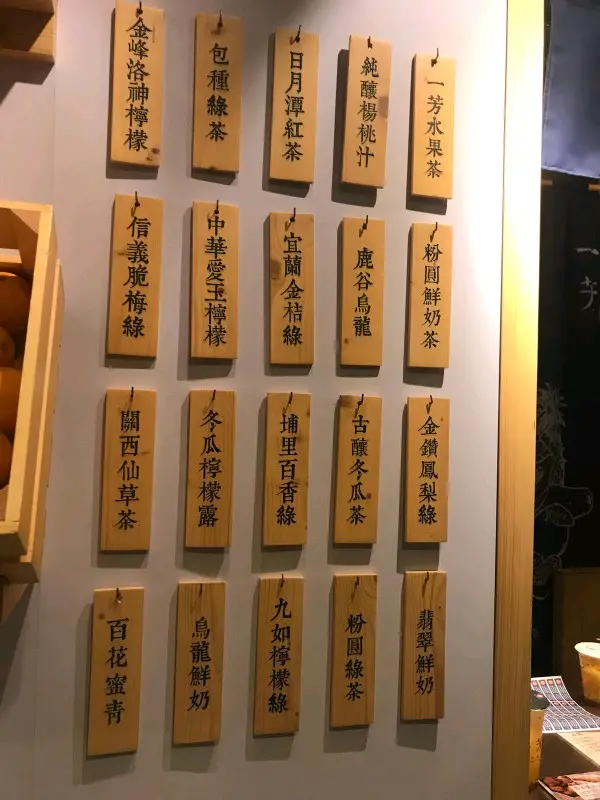 一芳水果茶
純釀楊桃汁
日月潭紅茶
包種綠茶
金峰洛神檸檬
粉圓鮮奶茶
鹿谷烏龍
宜蘭金桔綠
中華愛玉檸檬
信義脆梅綠
金鑽鳳梨綠
古釀冬瓜茶
埔里百香綠
冬瓜檸檬露
關西仙草茶
翡翠鮮奶
粉圓綠茶
九如檸檬綠
烏龍鮮奶
百花蜜青
一芳